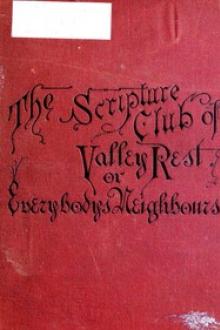 The Scripture
Club of
Valley Rest
or
Everybodys Neighbours